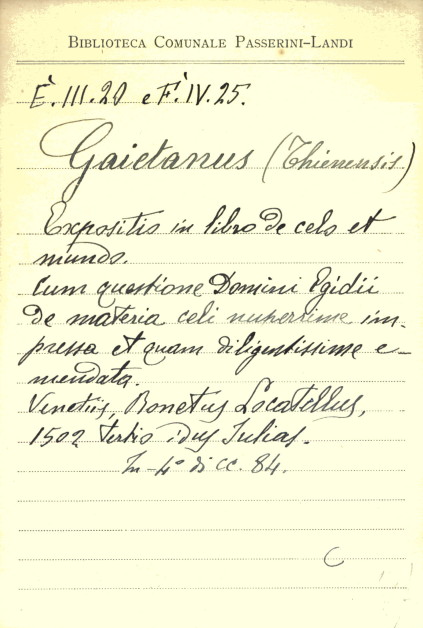 BIBLIOTECA COMUNALE PASSERINI-LANDI
È. III. 20 e F. IV. 25.
Gaietanus (Thienensis)
Expositio in libro de celo et
mundo.
Cum questione Domini Egidii
de materia celi nuperrime im-
pressa et quam diligentissime e-
mendata.
Venetiis, Bonetus Locatellus,
1502 tertio idus Julias.
In-4° di cc. 84.